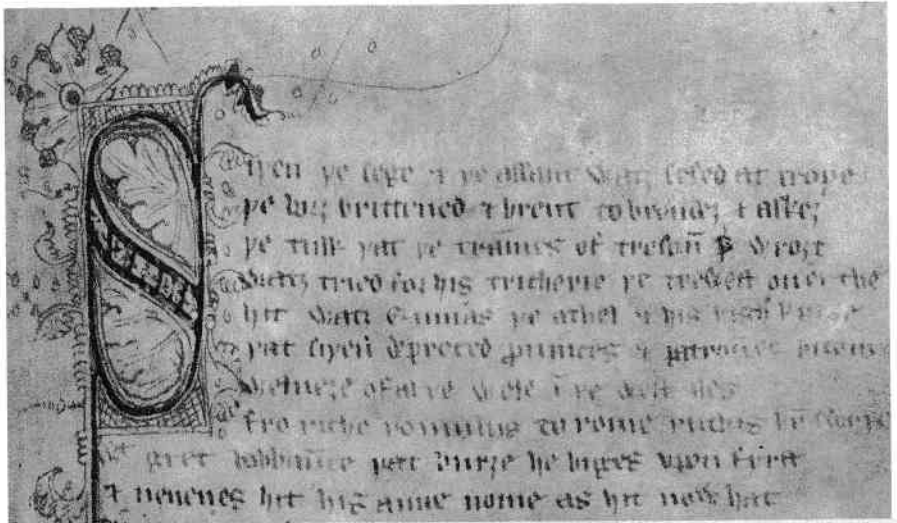 Siþen þe sege & þe assaut watz sesed at troye
þe borȝ brittened & brent to brondeȝ & askez
þe tulk þat þe tram̄es of tresoun̄ þ̵ wroȝt
watz tried for his tricherie þe trewest on erthe
hit watz Ennias þe athel & his high kynde
þat siþen depreced ꝓuinces & patrounes bicom
welneȝe of al þe wele ī þe west iles
fro riche romulus to rome ricchis hȳ swyþe
gret bobbaūce þat burȝe he biges vpon fyrst
& neuenes hit his aune nome as hit now hat